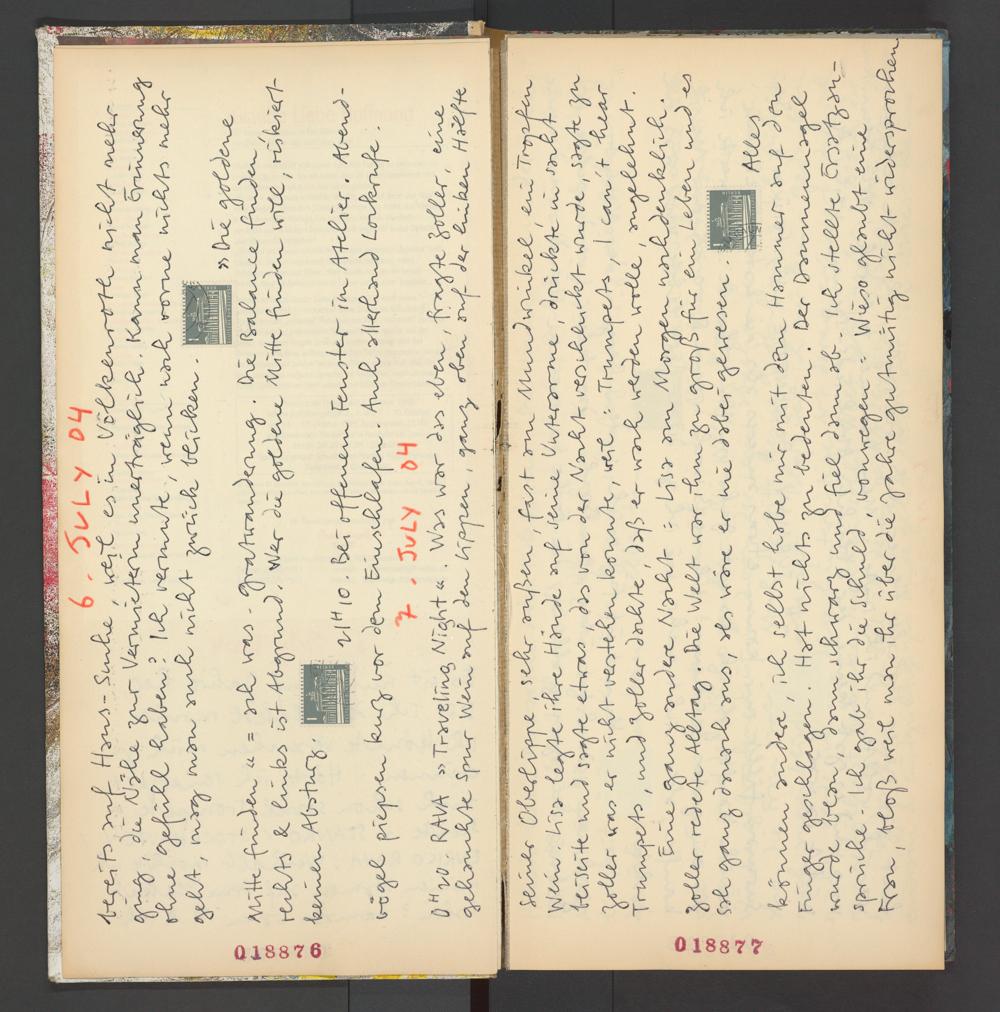 6. JULY 04
bereits auf Haus-Suche, weil es in Völkenroth nicht mehr
ging, die Nähe zur Vermieterin unerträglich. Kann man Erinnerung
ohne Gefühl haben? Ich vermute, wenn nach vorne nichts mehr
geht, mag man auch nicht zurück blicken.
»Die goldene
Mitte finden« = ach was. Gratwanderung. Die Balance finden.
rechts & links ist Abgrund. Wer die goldene Mitte finden will, riskiert
keinen Absturz.
21H10. Bei offenem Fenster im Atelier. Abend-
vögel piepsen kurz vor dem Einschlafen. Auch allerhand Lockrufe.
7. JULY 04
0H20 RAVA »Traveling Night«. Was war das eben, fragte Zoller, eine
gehauchte Spur Wein auf den Lippen, ganz oben auf der linken Hälfte
018876
seiner Oberlippe, sehr außen, fast am Mundwinkel ein Tropfen
Wein. Lisa legte ihre Hände auf seine Unterarme, drückte ihn sacht
beiseite und sagte etwas, das von der Nacht verschluckt wurde, sagte zu
Zoller was er nicht verstehen konnte, weil: Trumpets, I can't hear
Trumpets, und Zoller dachte, daß er wach werden wolle, angelehnt.
Eine ganz andere Nacht: Lisa am Morgen nachdenklich.
Zoller redet Alltag. Die Welt war ihm zu groß für ein Leben und es
sah ganz danach aus, als wäre er nie dabei gewesen.
Alles
können andere, ich selbst habe mir mit dem Hammer auf den
Finger geschlagen. Hat nichts zu bedeuten. Der Daumennagel
wurde blau, dann schwarz und fiel dann ab. Ich stellte Ersatzan-
sprüche. Ich gab ihr die Schuld, vonwegen: Wieso glaubt eine
Frau, bloß weil man ihr über die Jahre gutmütig nicht widersprochen
018877